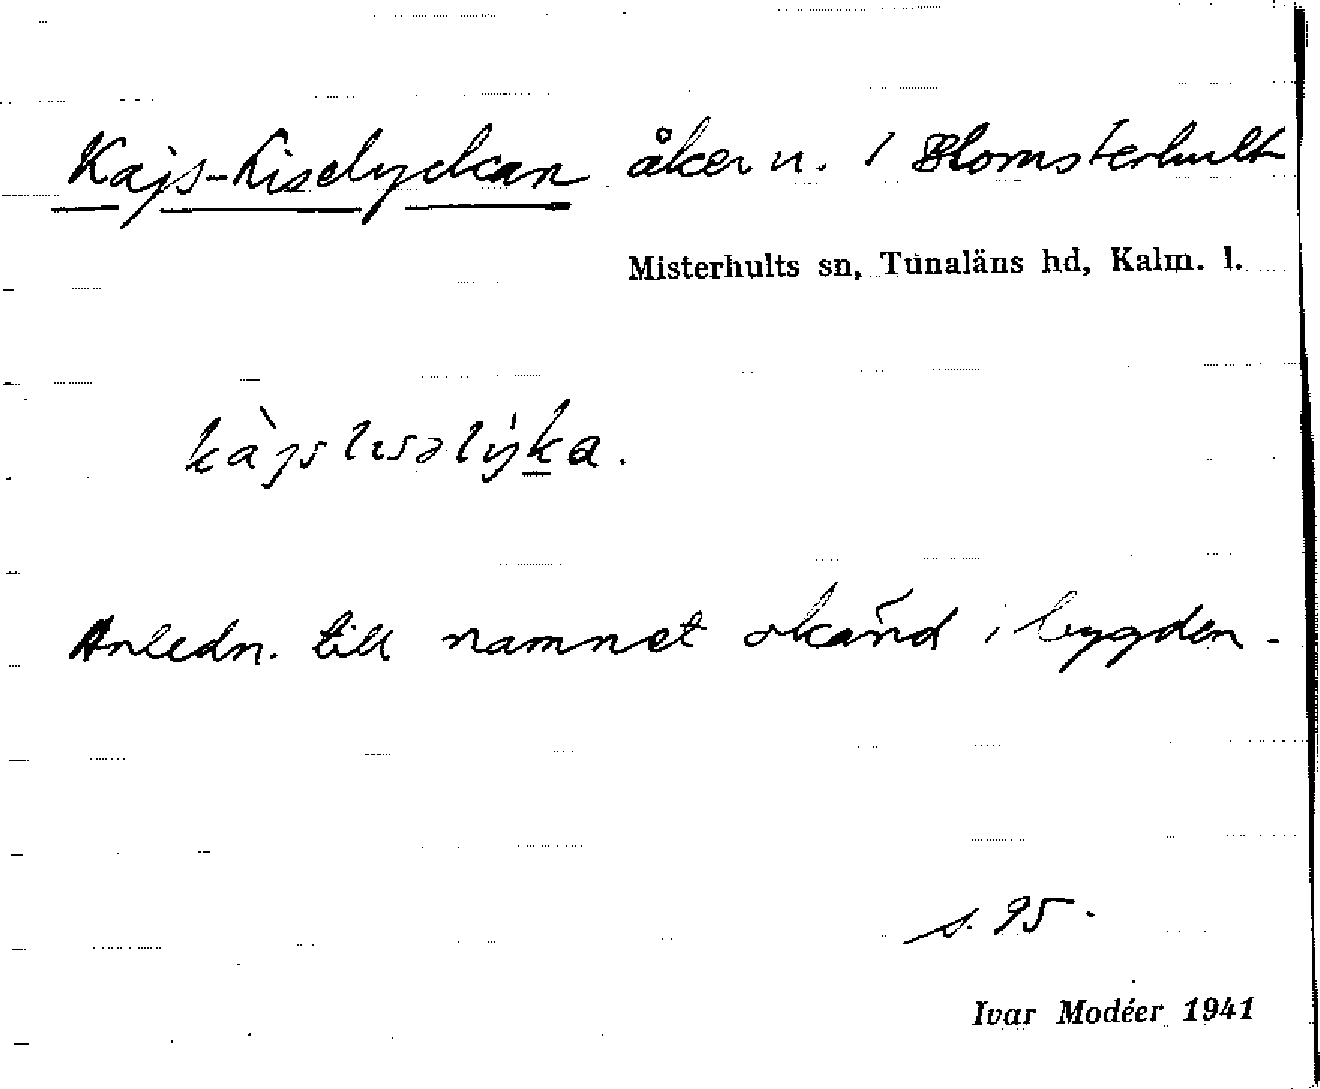 Kajs-Liselyckan åker n. i Blomsterhult
Misterhults sn, Tunaläns hd, Kalm. l.
kàjslısəlýka.
Anledn. till namnet okänd i bygden.
s. 95.
Ivar Modéer 1941